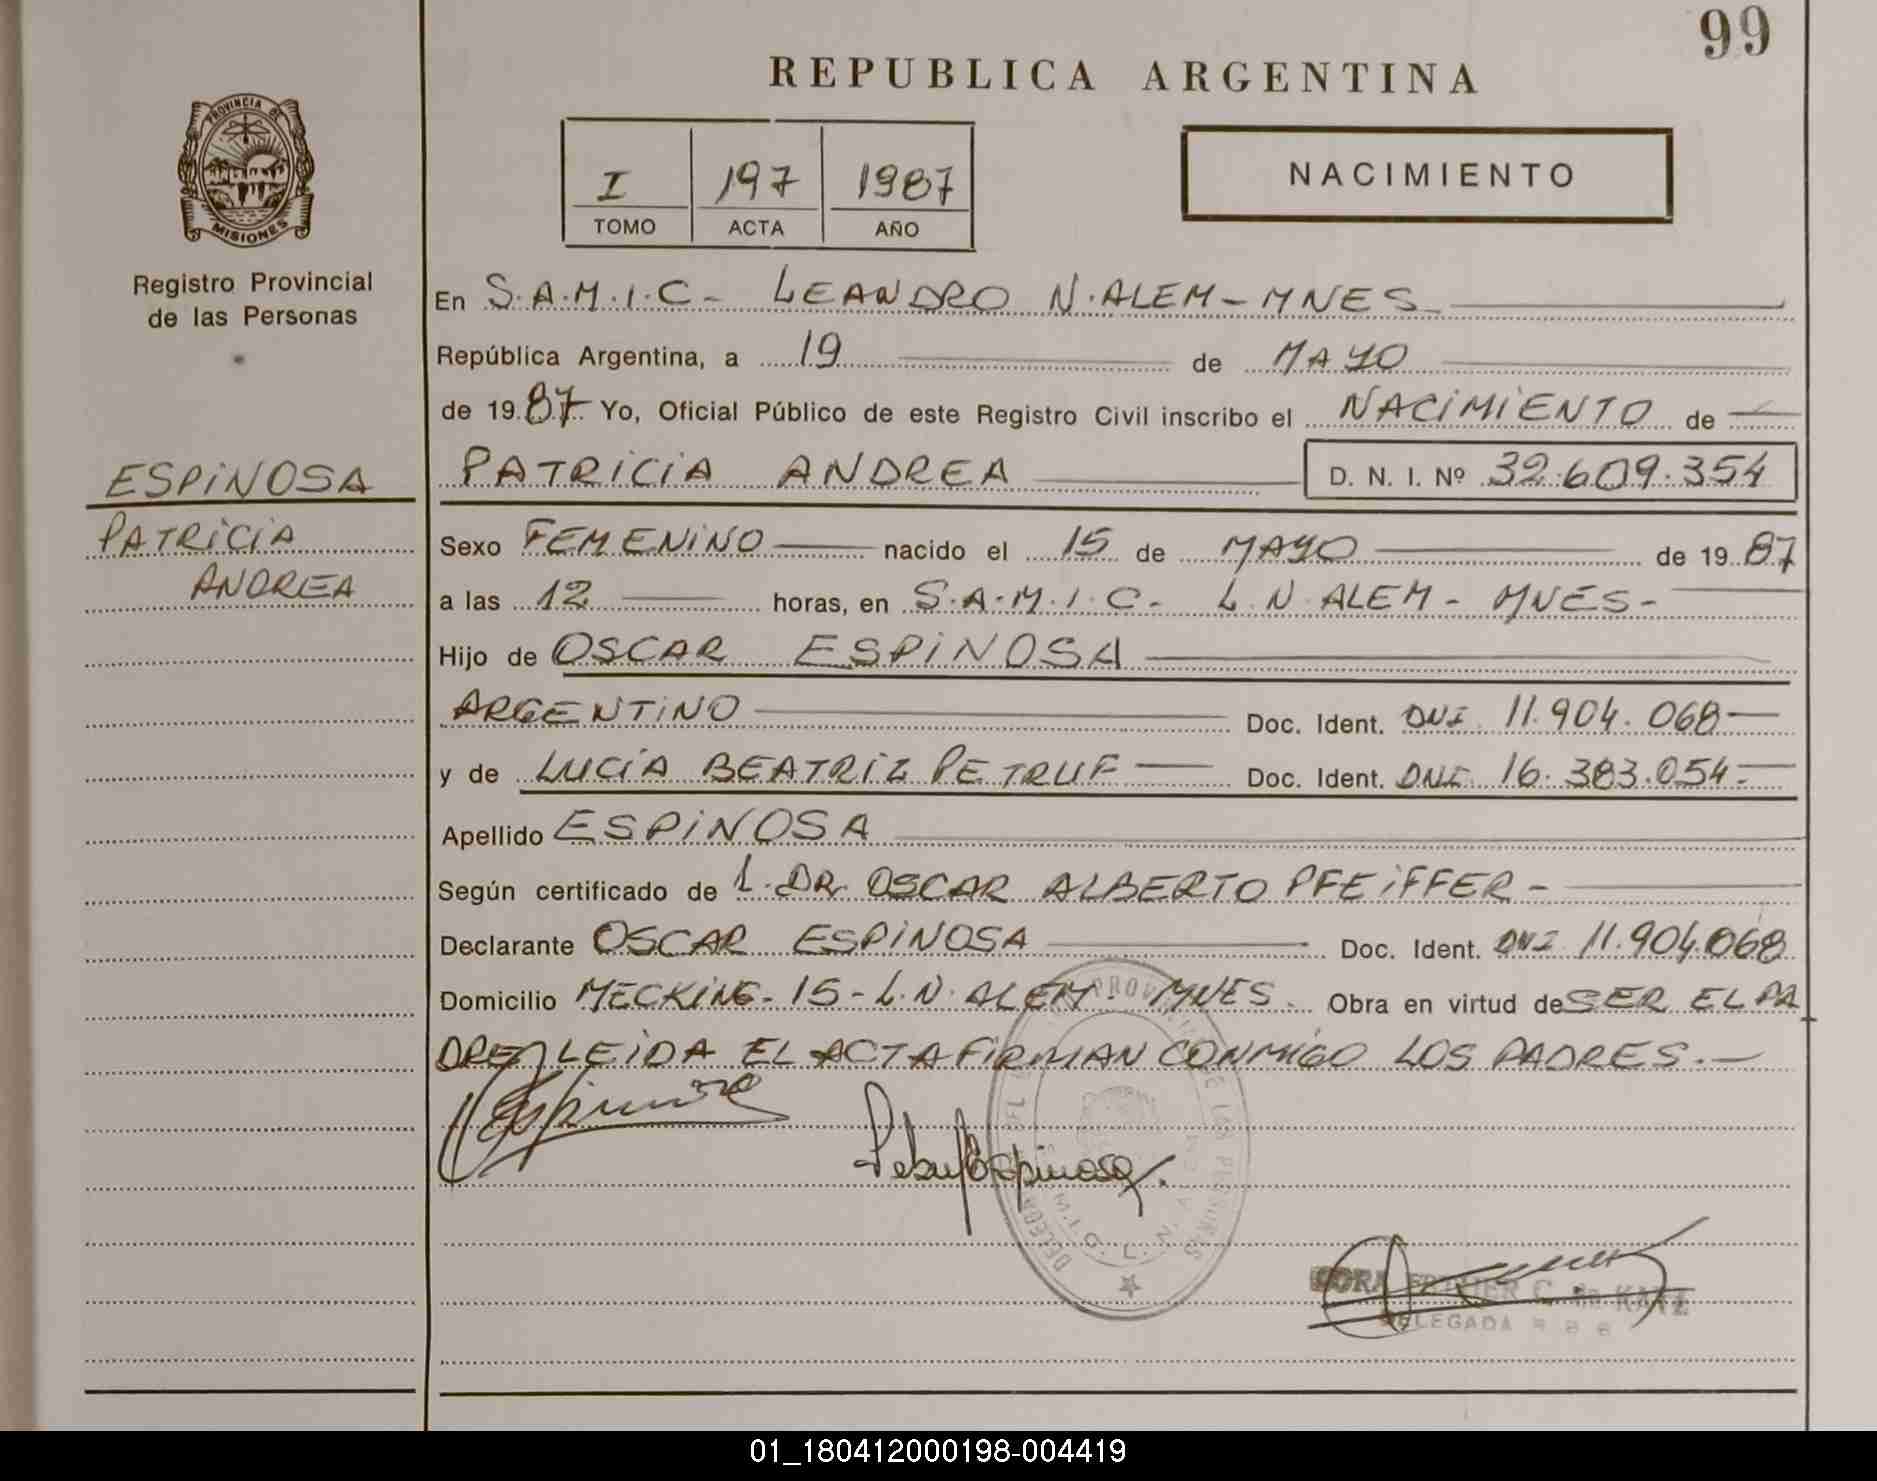 99
REPUBLICA ARGENTINA
PROVINCIA DE
MISIONES
Registro Provincial
de las Personas
I 197 1987
TOMO ACTA AÑO
NACIMIENTO
En S.A.M.I.C- LEANDRO N.ALEM-MNES
República Argentina, a 19 de MAYO
de 1987 Yo, Oficial Público de este Registro Civil inscribo el NACIMIENTO de
ESPINOSA
PATRICIA
ANDREA
PATRICIA ANDREA D. N. I. Nº 32.609.354
Sexo FEMENINO nacido el 15 de MAYO de 1987
a las 12 horas, en S.A.M.I.C- L.N.ALEM- MNES-
Hijo de OSCAR ESPINOSA
ARGENTINO Doc. Ident. DNI 11.904.068
y de LUCIA BEATRIZ PETRUF Doc. Ident. DNI. 16.383.054.-
Apellido ESPINOSA
Según certificado de L. DR. OSCAR ALBERTO PFEIFFER-
Declarante OSCAR ESPINOSA Doc. Ident. DNI 11.904.068
Domicilio MECKING-15-L.N.ALEM- MNES. Obra en virtud de SER EL PA
DRE LEIDA EL ACTA FIRMAN CONMIGO LOS PADRES.-
Espinosa
DELEGADA
01_180412000198-004419